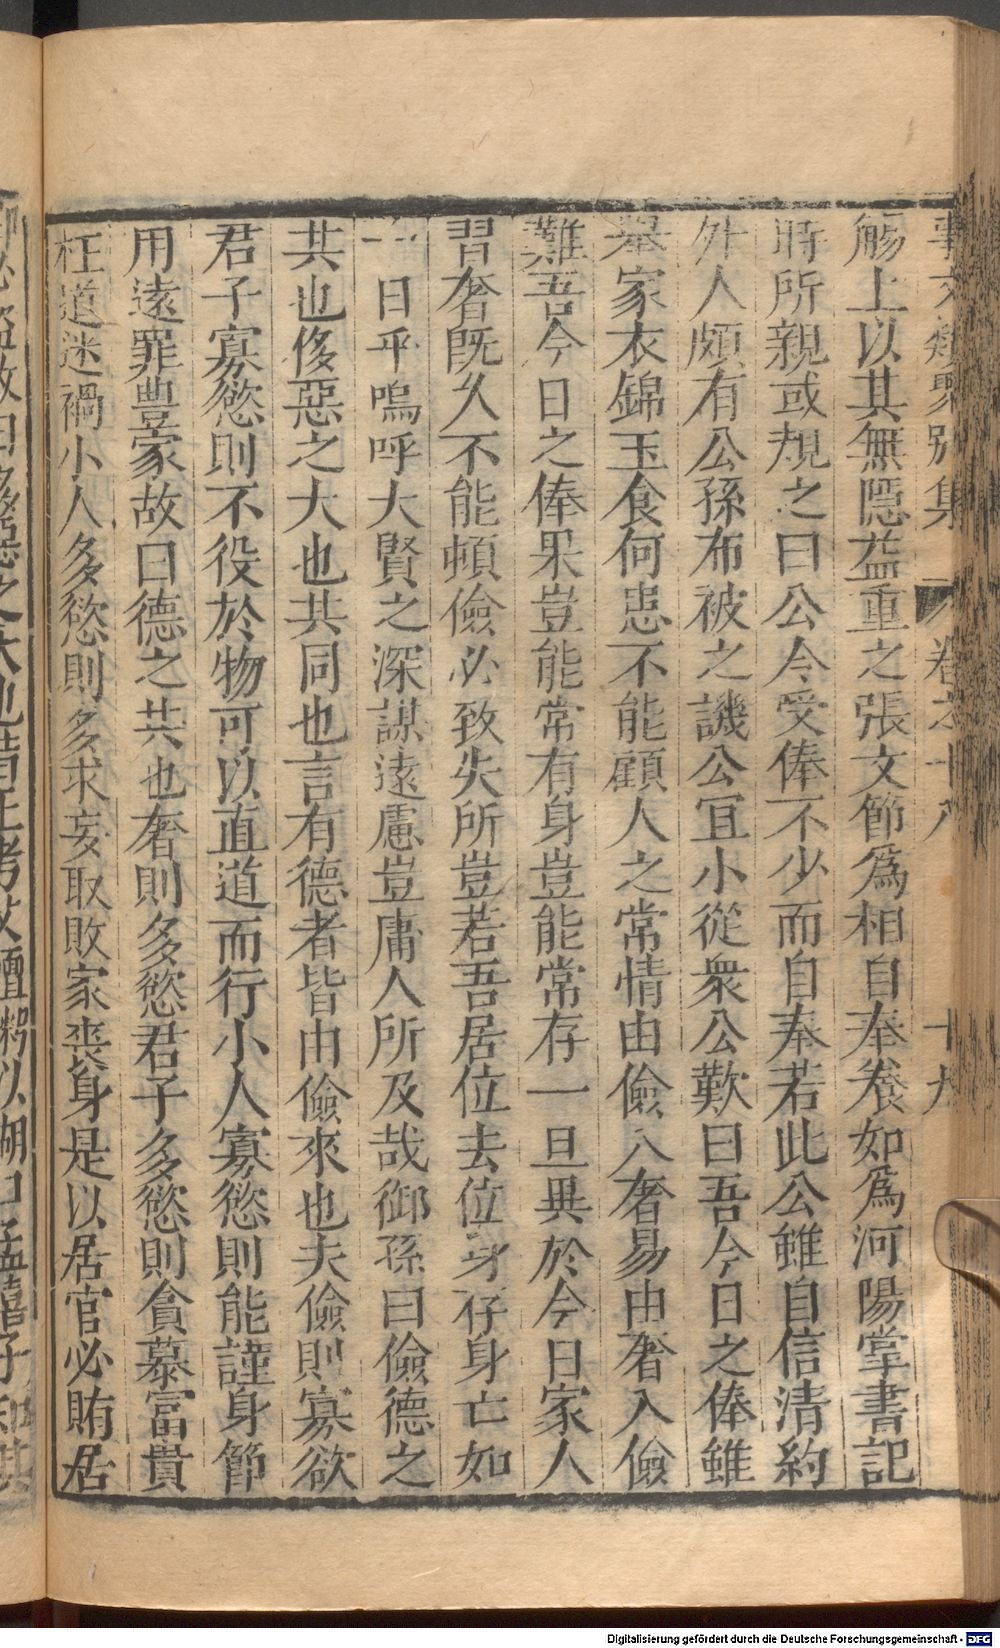 事文類聚別集 卷之十八 十九
觴上以其無隱益重之張文節爲相自奉養如爲河陽掌書記
時所親或規之曰公今受俸不少而自奉若此公雖自信清約
外人頗有公孫布被之譏公宜小從衆公歎曰吾今日之俸雖
舉家衣錦玉食何患不能顧人之常情由儉入奢易由奢入儉
難吾今日之俸果豈能常有身豈能常存一旦異於今日家人
習奢既久不能頓儉必致失所豈若吾居位去位身存身亡如
一日乎嗚呼大賢之深謀遠慮豈庸人所及哉御孫曰儉德之
共也侈惡之大也共同也言有德者皆由儉來也夫儉則寡欲
君子寡慾則不役於物可以直道而行小人寡慾則能謹身節
用遠罪豐家故曰德之共也奢則多慾君子多慾則貪慕富貴
枉道迷禍小人多慾則多求妄取敗家喪身是以居官必賄居
鄉必盜故曰侈惡之大也昔正考父饘粥以餬口孟僖子知其
Digitalisierung gefördert durch die Deutsche Forschungsgemeinschaft - DFG